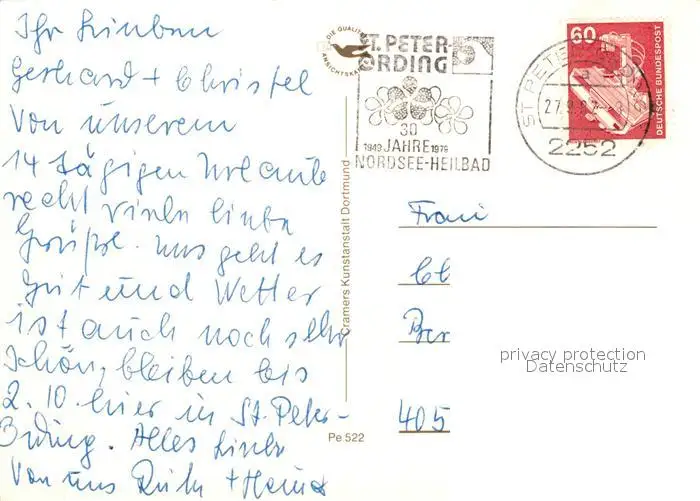 Ihr Lieben
Gerhard + Christel
Von unserem
14 tägigen Urlaub
recht viele liebe
Grüße. Uns geht es
gut und Wetter
ist auch noch sehr
schön, bleiben bis
2. 10. hier in St. Peter-
Ording. Alles Liebe
Von uns +
DIE QUALITÄTS
ANSICHTSKARTE
ST. PETER-
ORDING
30
1949 JAHRE 1979
NORDSEE-HEILBAD
ST PETER
27.9.
2252
60
DEUTSCHE BUNDESPOST
Cramers Kunstanstalt Dortmund
Pe 522
Frau
Ber
405
privacy protection
Datenschutz